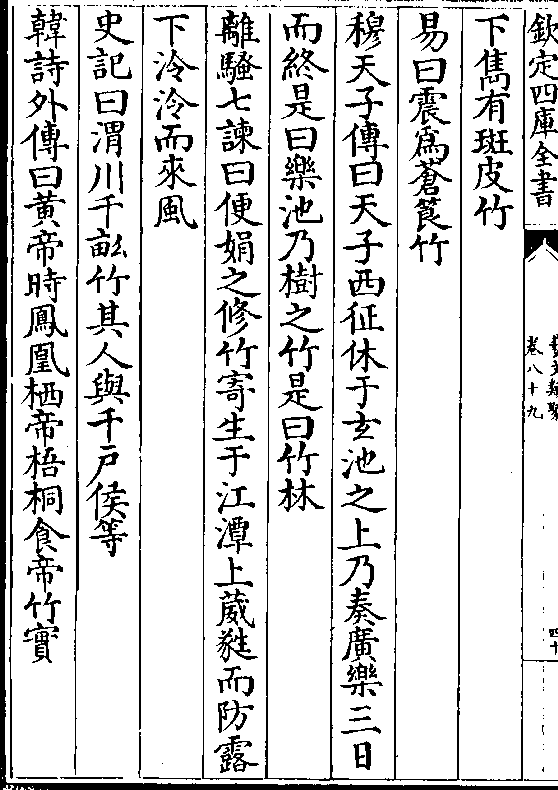 欽定四庫全書
卷八十九
四十
下雋有斑皮竹
易曰震為蒼筤竹
穆天子傳曰天子西征休于玄池之上乃奏廣樂三日
而終是曰樂池乃樹之竹是曰竹林
離騷七諫曰便娟之修竹寄生于江潭上葳蕤而防露
下泠泠而來風
史記曰渭川千畝竹其人與千戶侯等
韓詩外傳曰黄帝時鳳凰栖帝梧桐食帝竹實